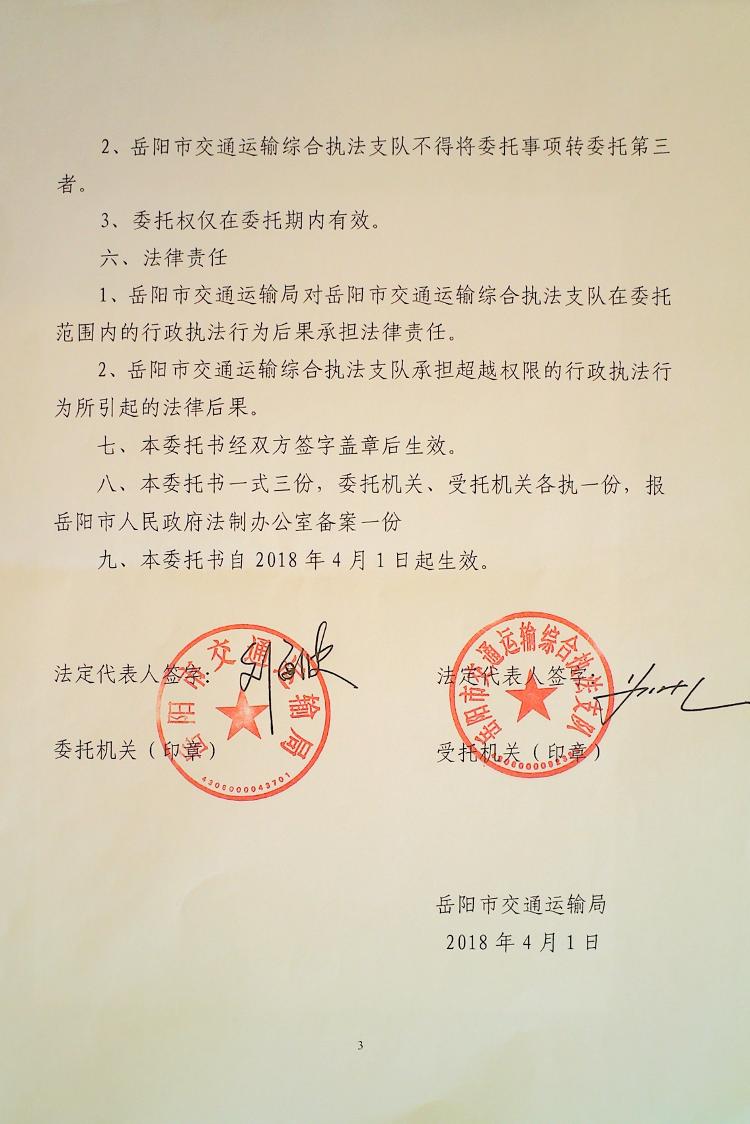 2、岳阳市交通运输综合执法支队不得将委托事项转委托第三
者。
3、委托权仅在委托期内有效。
六、法律责任
1、岳阳市交通运输局对岳阳市交通运输综合执法支队在委托
范围内的行政执法行为后果承担法律责任。
2、岳阳市交通运输综合执法支队承担超越权限的行政执法行
为所引起的法律后果。
七、本委托书经双方签字盖章后生效。
八、本委托书一式三份，委托机关、受托机关各执一份，报
岳阳市人民政府法制办公室备案一份
九、本委托书自 2018 年 4 月 1 日起生效。
法定代表人签字：
法定代表人签字：
岳阳市交通运输局
4306000043701
岳阳市交通运输综合执法支队
委托机关（印章）
受托机关（印章）
岳阳市交通运输局
2018 年 4 月 1 日
3